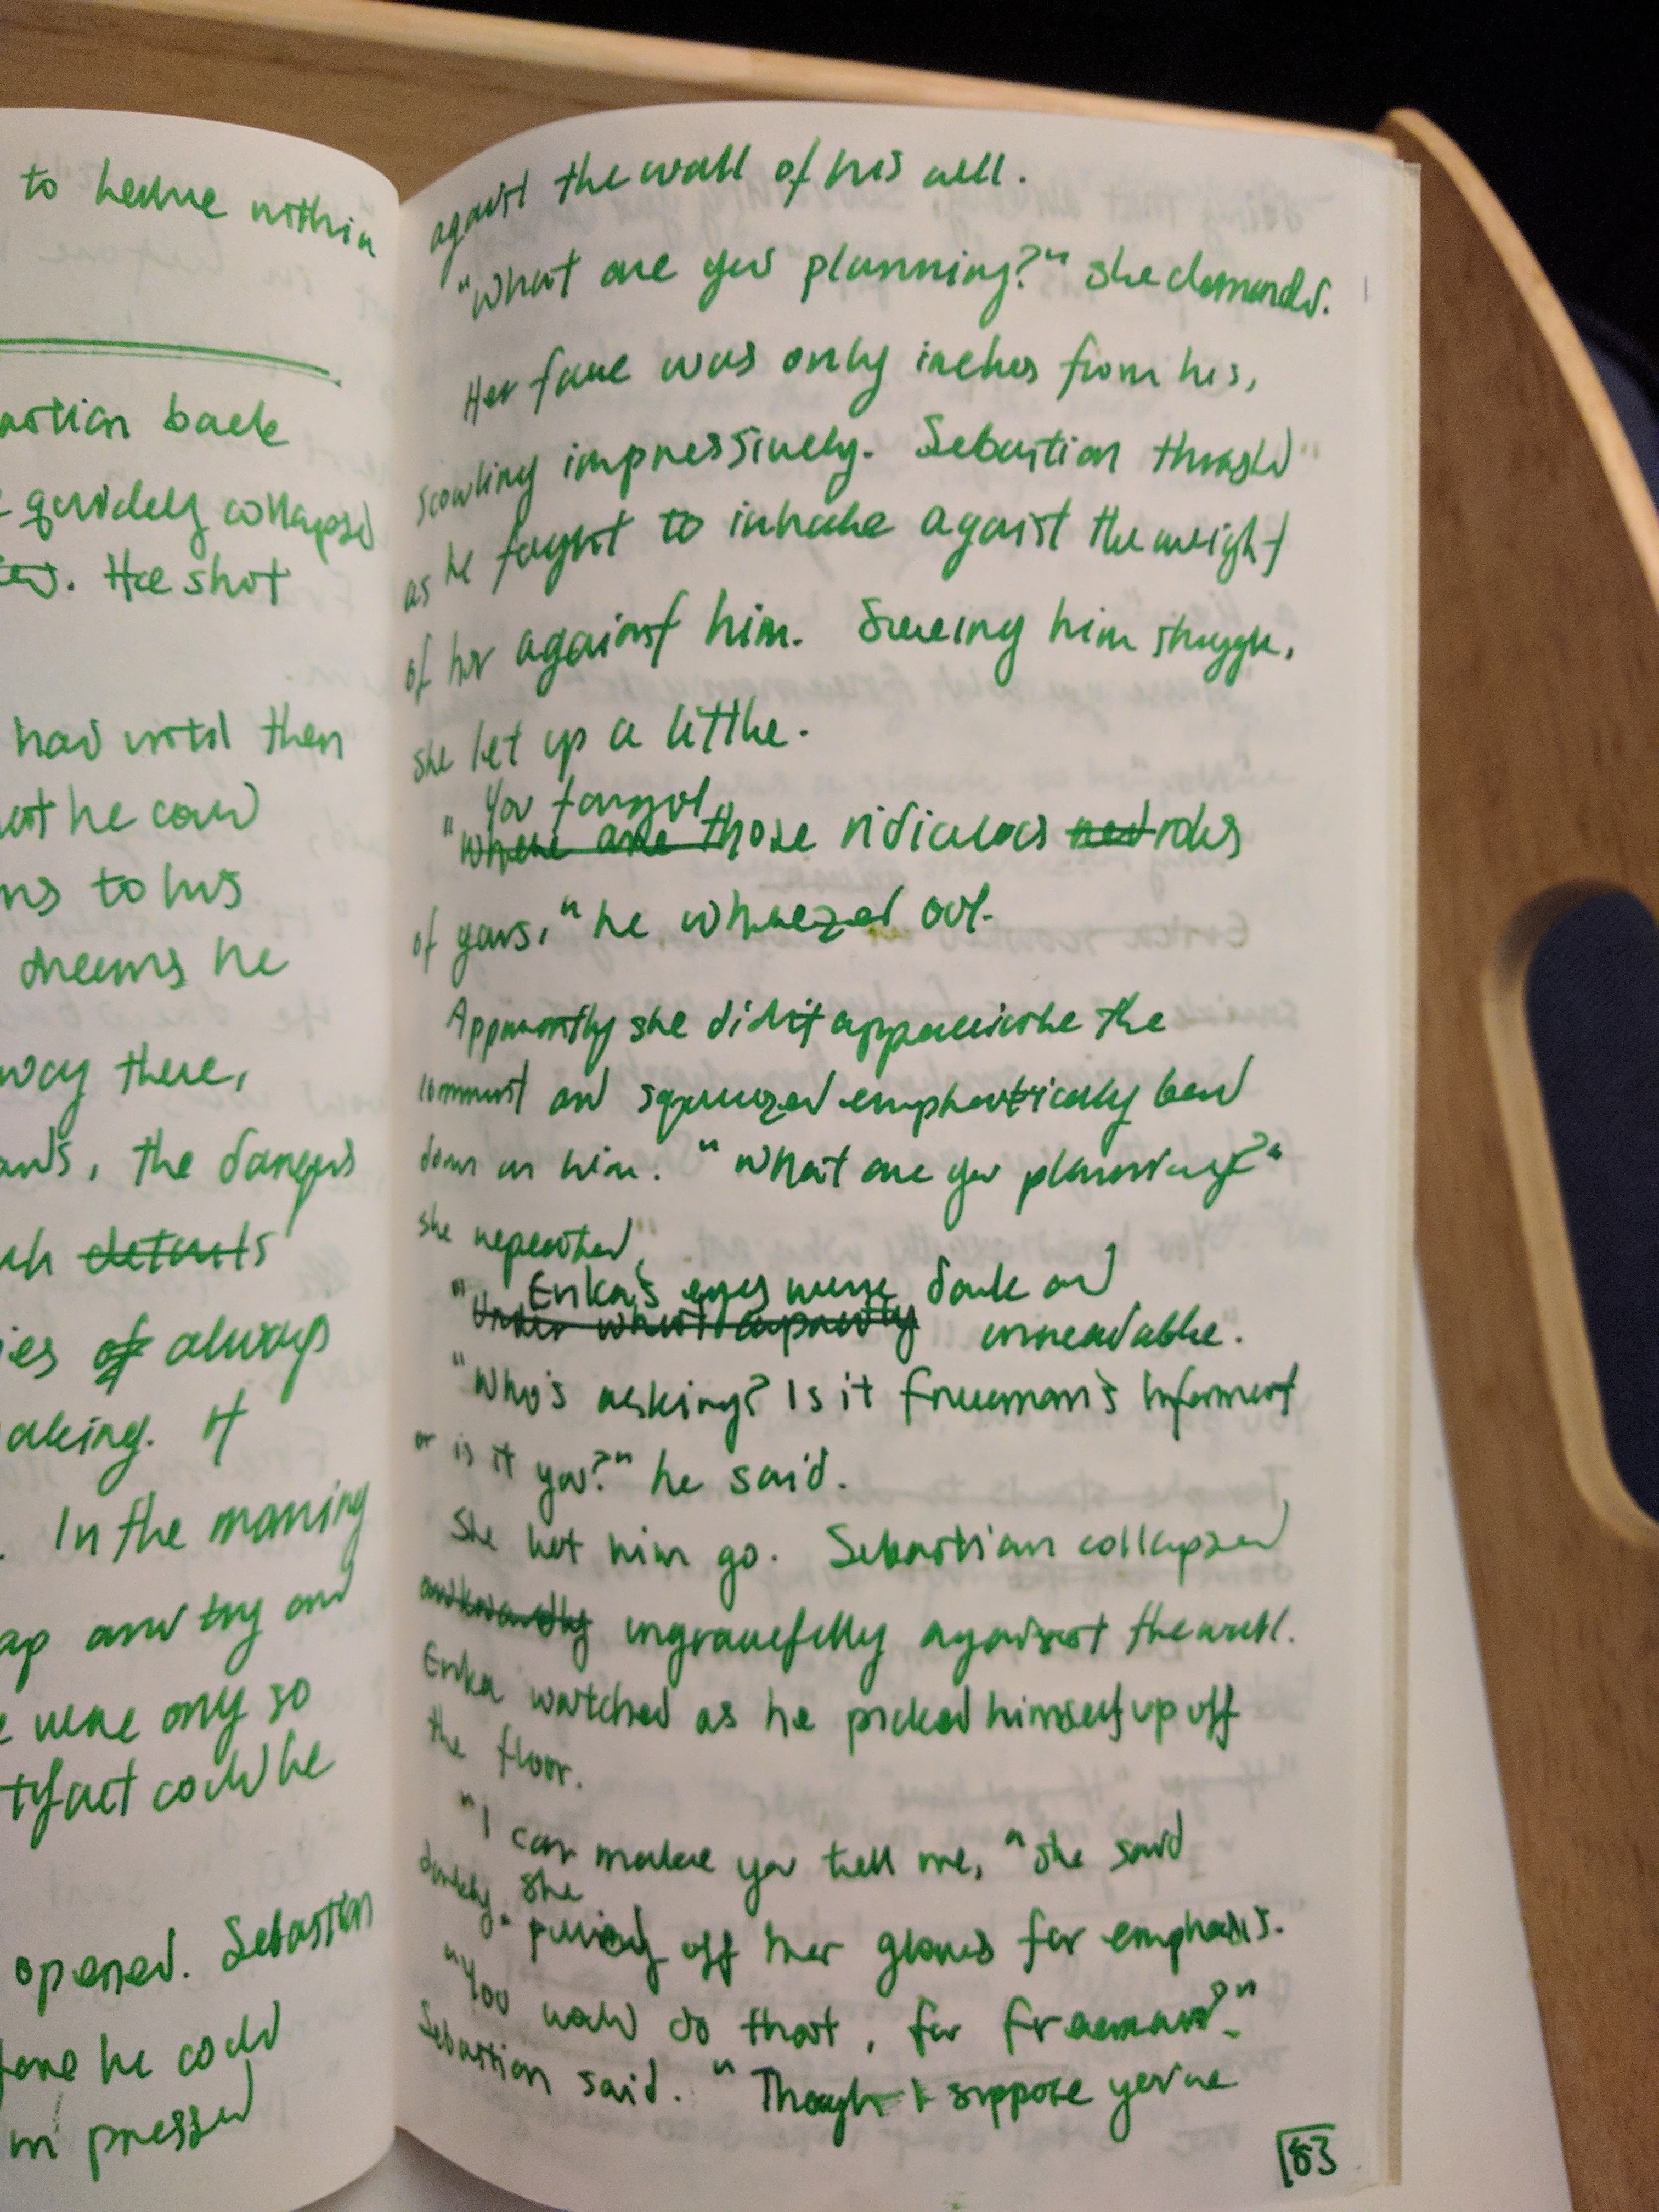 to heave within
astian back
quickly collapsed
. He shot
had until then
he could
to his
dreams he
way there,
, the dangers
details
of always
aking. It
. In the morning
ap and try and
were only so
tifact could he
opened. Sebastian
he could
pressed
against the wall of his cell.
"What are you planning?" she demands.
Her face was only inches from his,
scowling impressively. Sebastian thought
as he fought to inhale against the weight
of her against him. Seeing him struggle,
she let up a little.
You forgot
"Where are those ridiculous red robes
of yours," he wheezed out.
Apparently she didn't appreciate the
comment and squeezed emphatically
down on him. "What are you planning?"
she repeated.
Erika's eyes were dark and
"Under what capacity unreadable.
"Who's asking? Is it Freeman's Informant
or is it you?" he said.
She let him go. Sebastian collapsed
awkwardly ungracefully against the wall.
Erika watched as he picked himself up off
the floor.
"I can make you tell me," she said
darkly. she
off her gloves for emphasis.
"You would do that, for Freeman?"
Sebastian said. "Though I suppose you've
83